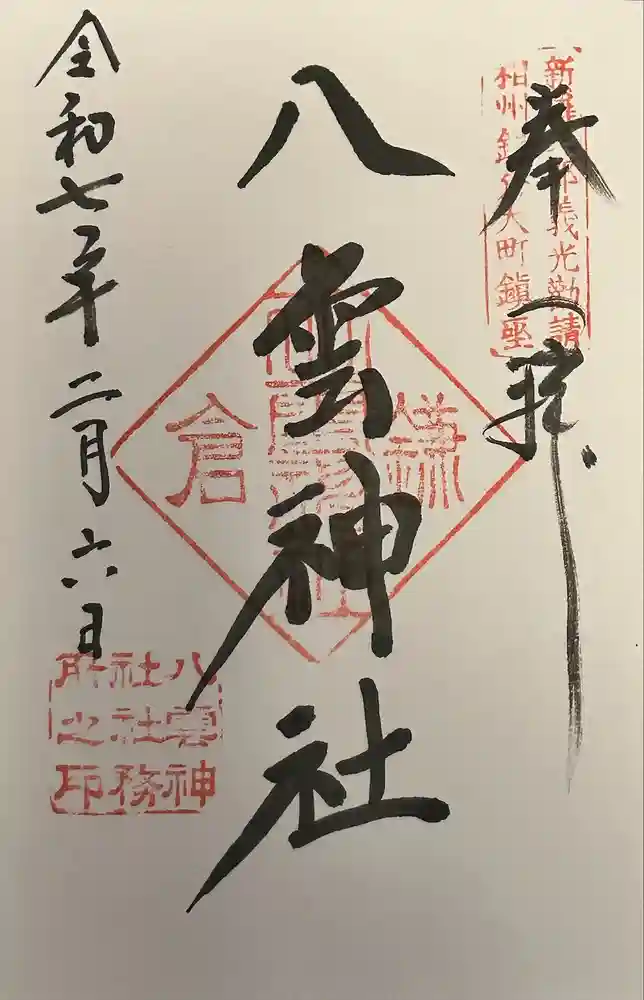 奉拝
新羅三郎義光勧請
相州鎌倉大町鎮座
八雲神社
鎌倉
令和七年二月六日
八雲神
社社務
所之印